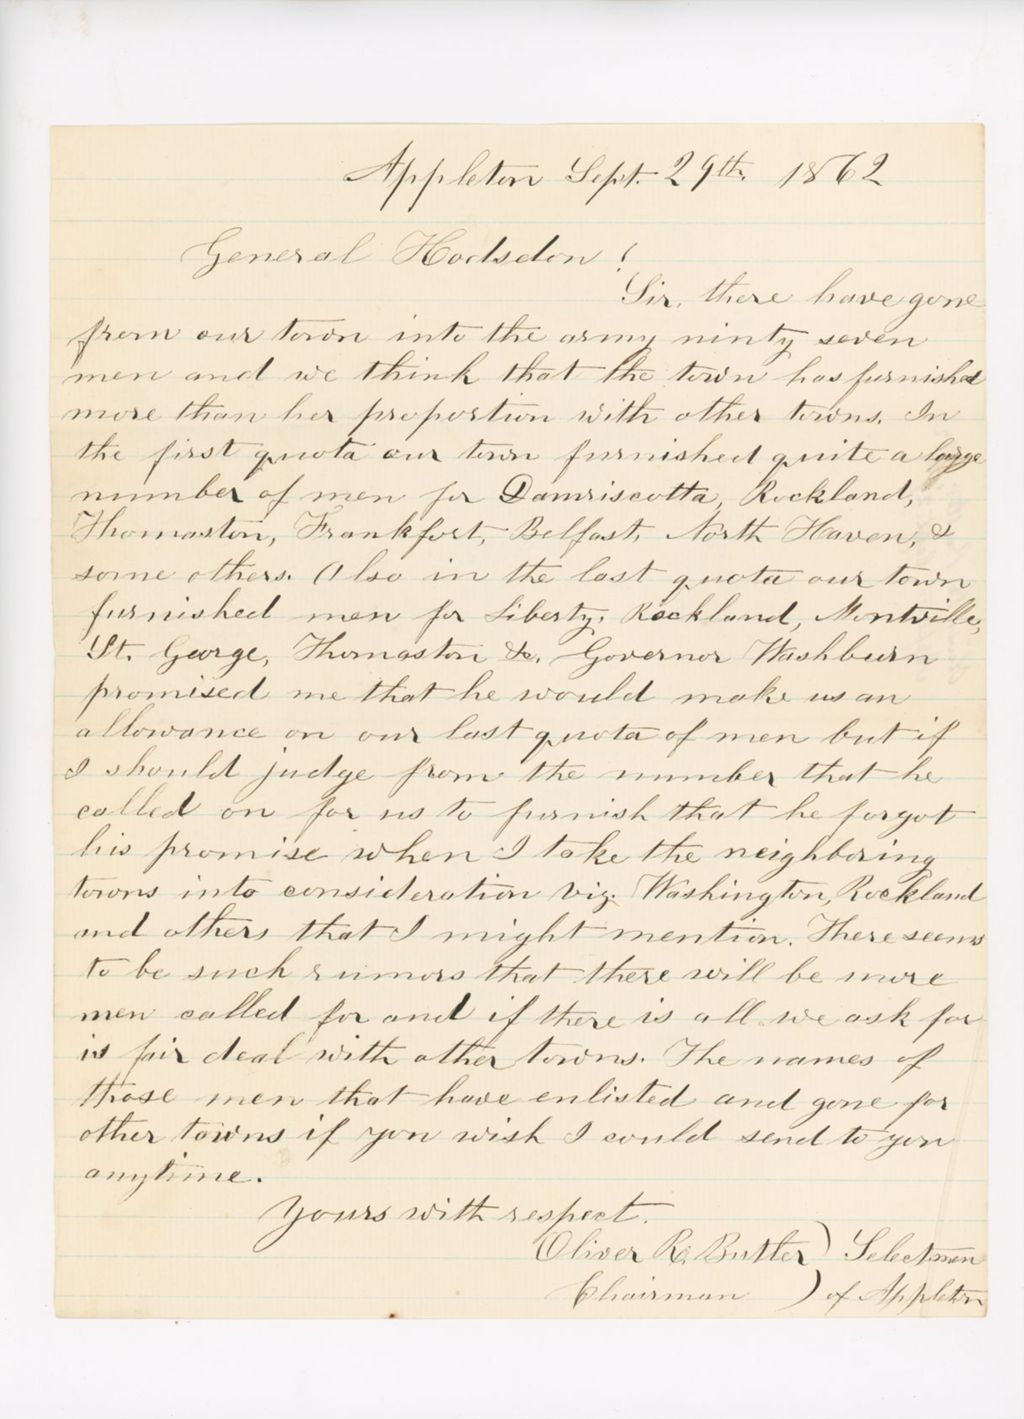 Appleton Sept. 29th. 1862
General Hodsdon!
Sir, there have gone
from our town into the army ninty seven
men and we think that the town has furnished
more than her proportion with other towns. In
the first quota our town furnished quite a large
number of men for Damriscotta, Rockland,
Thomaston, Frankfort, Belfast, North Haven, &
some others. Also in the last quota our town
furnished men for Liberty, Rockland, Montville,
St. George, Thomaston &c. Governor Washburn
promised me that he would make us an
allowance on our last quota of men but if
I should judge from the number that he
called on for us to furnish that he forgot
his promise when I take the neighboring
towns into consideration viz. Washington, Rockland
and others that I might mention. There seems
to be such rumors that there will be more
men called for and if there is all we ask for
is fair deal with other towns. The names of
those men that have enlisted and gone for
other towns if you wish I could send to you
anytime.
Yours with respect.
Oliver R. Butler ) Selectmen
Chairman ) of Appleton